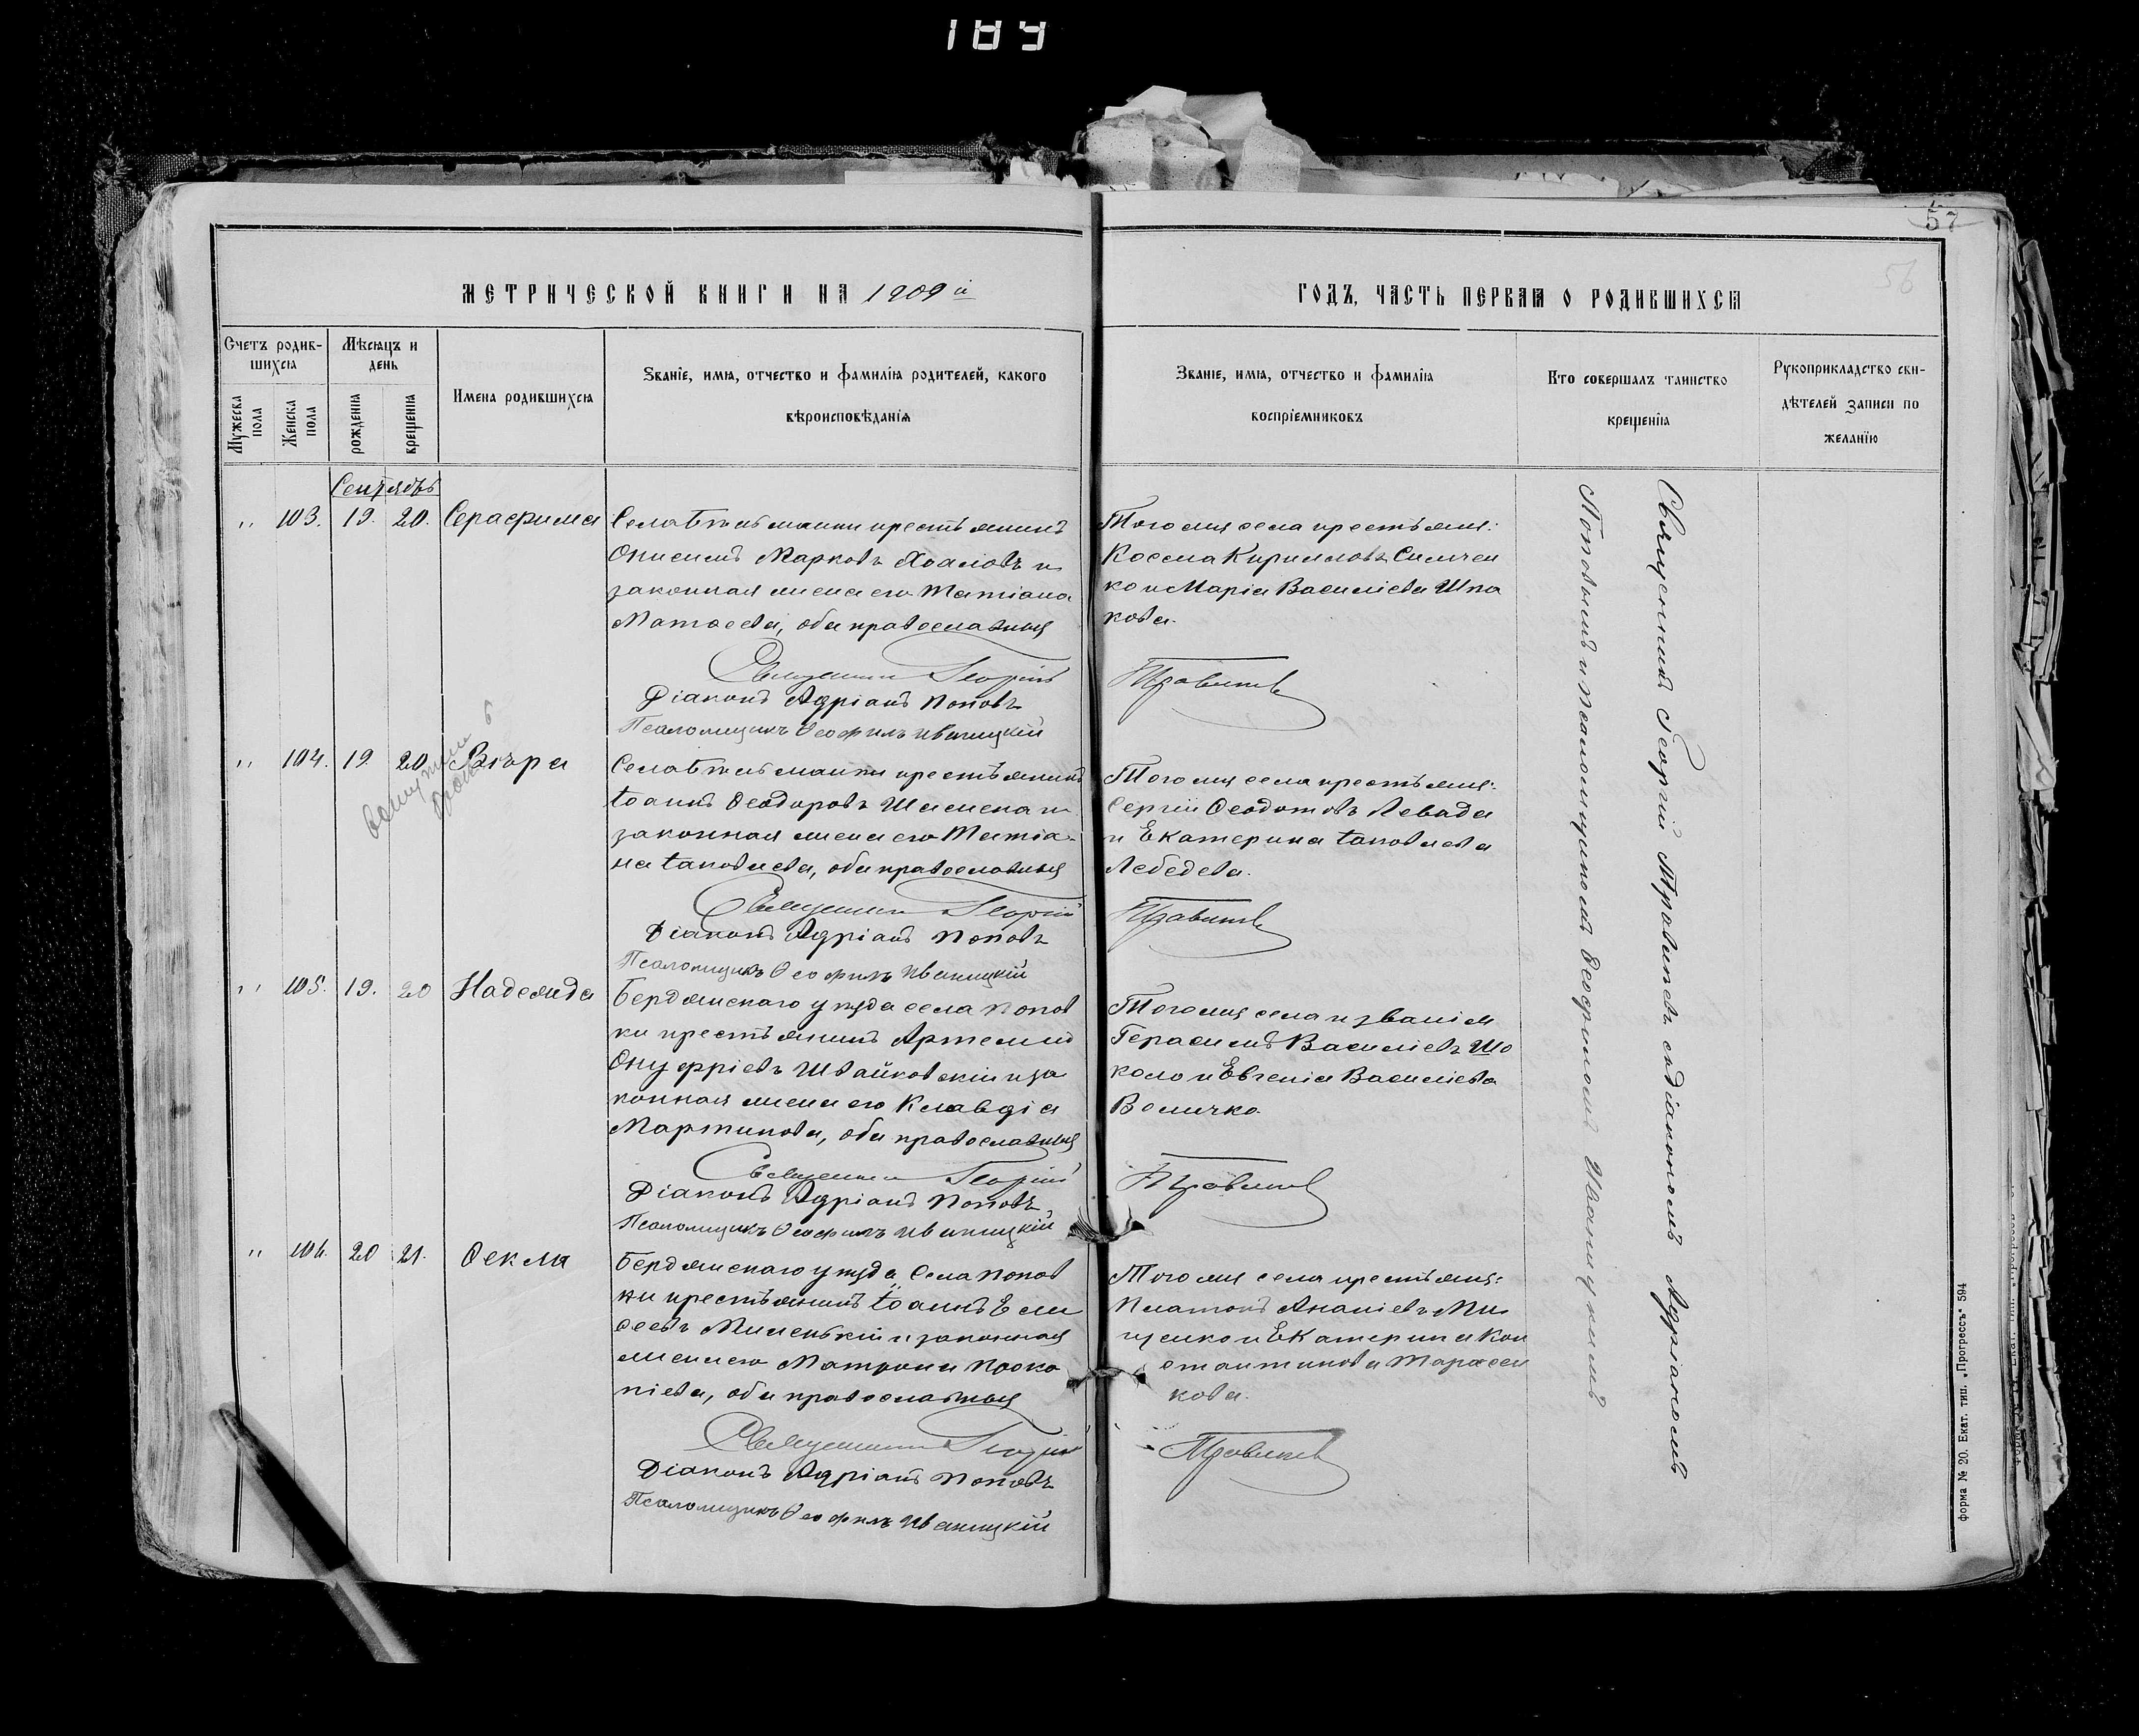 189
57
56
МЕТРИЧЕСКОЙ КНИГИ НА 1909 й
ГОДЪ, ЧАСТЬ ПЕРВАЯ О РОДИВШИХСЯ
Счетъ родив-
шихся
Мѣсяцъ и
день
Мужеска
пола
Женска
пола
рожденія
крещенія
Имена родившихся
Званіе, имя, отчество и фамилія родителей, какого
вѣроисповѣданія
Званіе, имя, отчество и фамилія
воспріемниковъ
Кто совершалъ таинство
крещенія
Рукоприкладство сви-
дѣтелей записи по
желанію
Сентябрь
" 103. 19. 20. Серафима
крестьянинъ
Онисимъ Марковъ и
законная жена его Татіана
Матѳеева, оба православныя
Священникъ Георгій
Діаконъ Адріанъ Поповъ
Псаломщикъ Ѳеофилъ Иваницкій
Того же села крестьяне:
Косма Кирилловъ Симчен
ко и Марія Василіева Шпа
кова.
Правитевъ
" 104. 19 20. Вѣра
крестьянинъ
Іоаннъ Ѳеодоровъ Шамена и
законная жена его Татіа-
на Іаковлева, оба православныя
Священникъ Георгій
Діаконъ Адріанъ Поповъ
Псаломщикъ Ѳеофилъ Иваницкій
Того же села крестьяне:
Сергій Ѳеодотовъ Левада
и Екатерина Іаковлева
Лебедева.
Правитевъ
" 105. 19. 20 Надежда
Бердянскаго уѣзда села Попов
ки крестьянинъ Артемій
Онуфріевъ Швайковскій и за
конная жена его Клавдіа
Мартинова, оба православныя
Священникъ Георгій
Діаконъ Адріанъ Поповъ
Псаломщикъ Ѳеофилъ Иваницкій
Того же села и званія
Герасимъ Василіевъ Шо
коло и Евгенія Василіева
Величко.
Правитевъ
" 106. 20 21. Ѳекла
Бердянскаго уѣзда, Села Попов
ки крестьянинъ Іоаннъ Ели
сеевъ Миленькій и законная
жена его Матрона Проко
піева, оба православныя
Священникъ Георгій
Діаконъ Адріанъ Поповъ
Псаломщикъ Ѳеофилъ Иваницкій
Того же села крестьяне:
Платонъ Ананіевъ Ми
щенко и Екатерина Кон
стантинова Тарасен
кова.
Правитевъ
Священникъ Георгій Правитевъ съ діакономъ Адріаномъ
Поповымъ и псаломщикомъ Ѳеофиломъ Иваницкимъ
форма № 20. Екат. тип. „Прогрессъ" 594